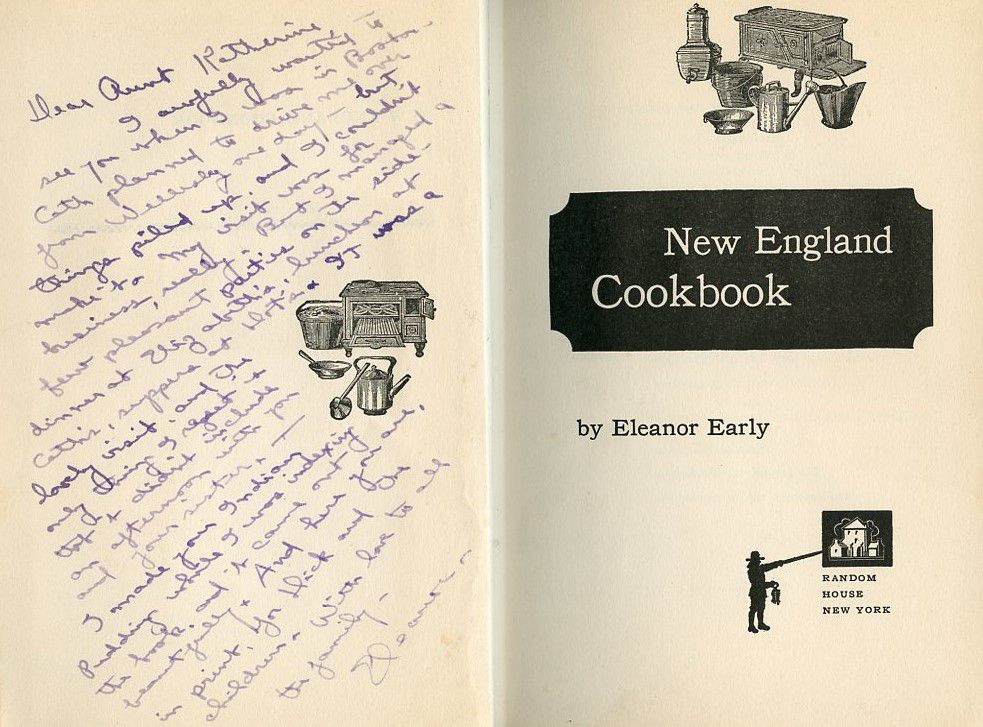 Dear Aunt Katherine
I awfully wanted to
see you when I was in Boston
Cath planned to drive me over
from Wellesley one day — but
things piled up, and I couldn't
make it. My visit was for
business, really. But I managed a
few pleasant parties on the side —
dinner at Elizabeth's, luncheon at
Cath's, suppers at
It was a
lovely visit, and the
only thing I regret is
that I didn't include
an afternoon with you
and your sister. —
I made your Indian
Pudding while I was indexing
the book, and it came out
beautifully. And here you are,
in print, you and the
children. With love to all
the family —
Eleanor —
New England
Cookbook
by Eleanor Early
RANDOM
HOUSE
NEW YORK